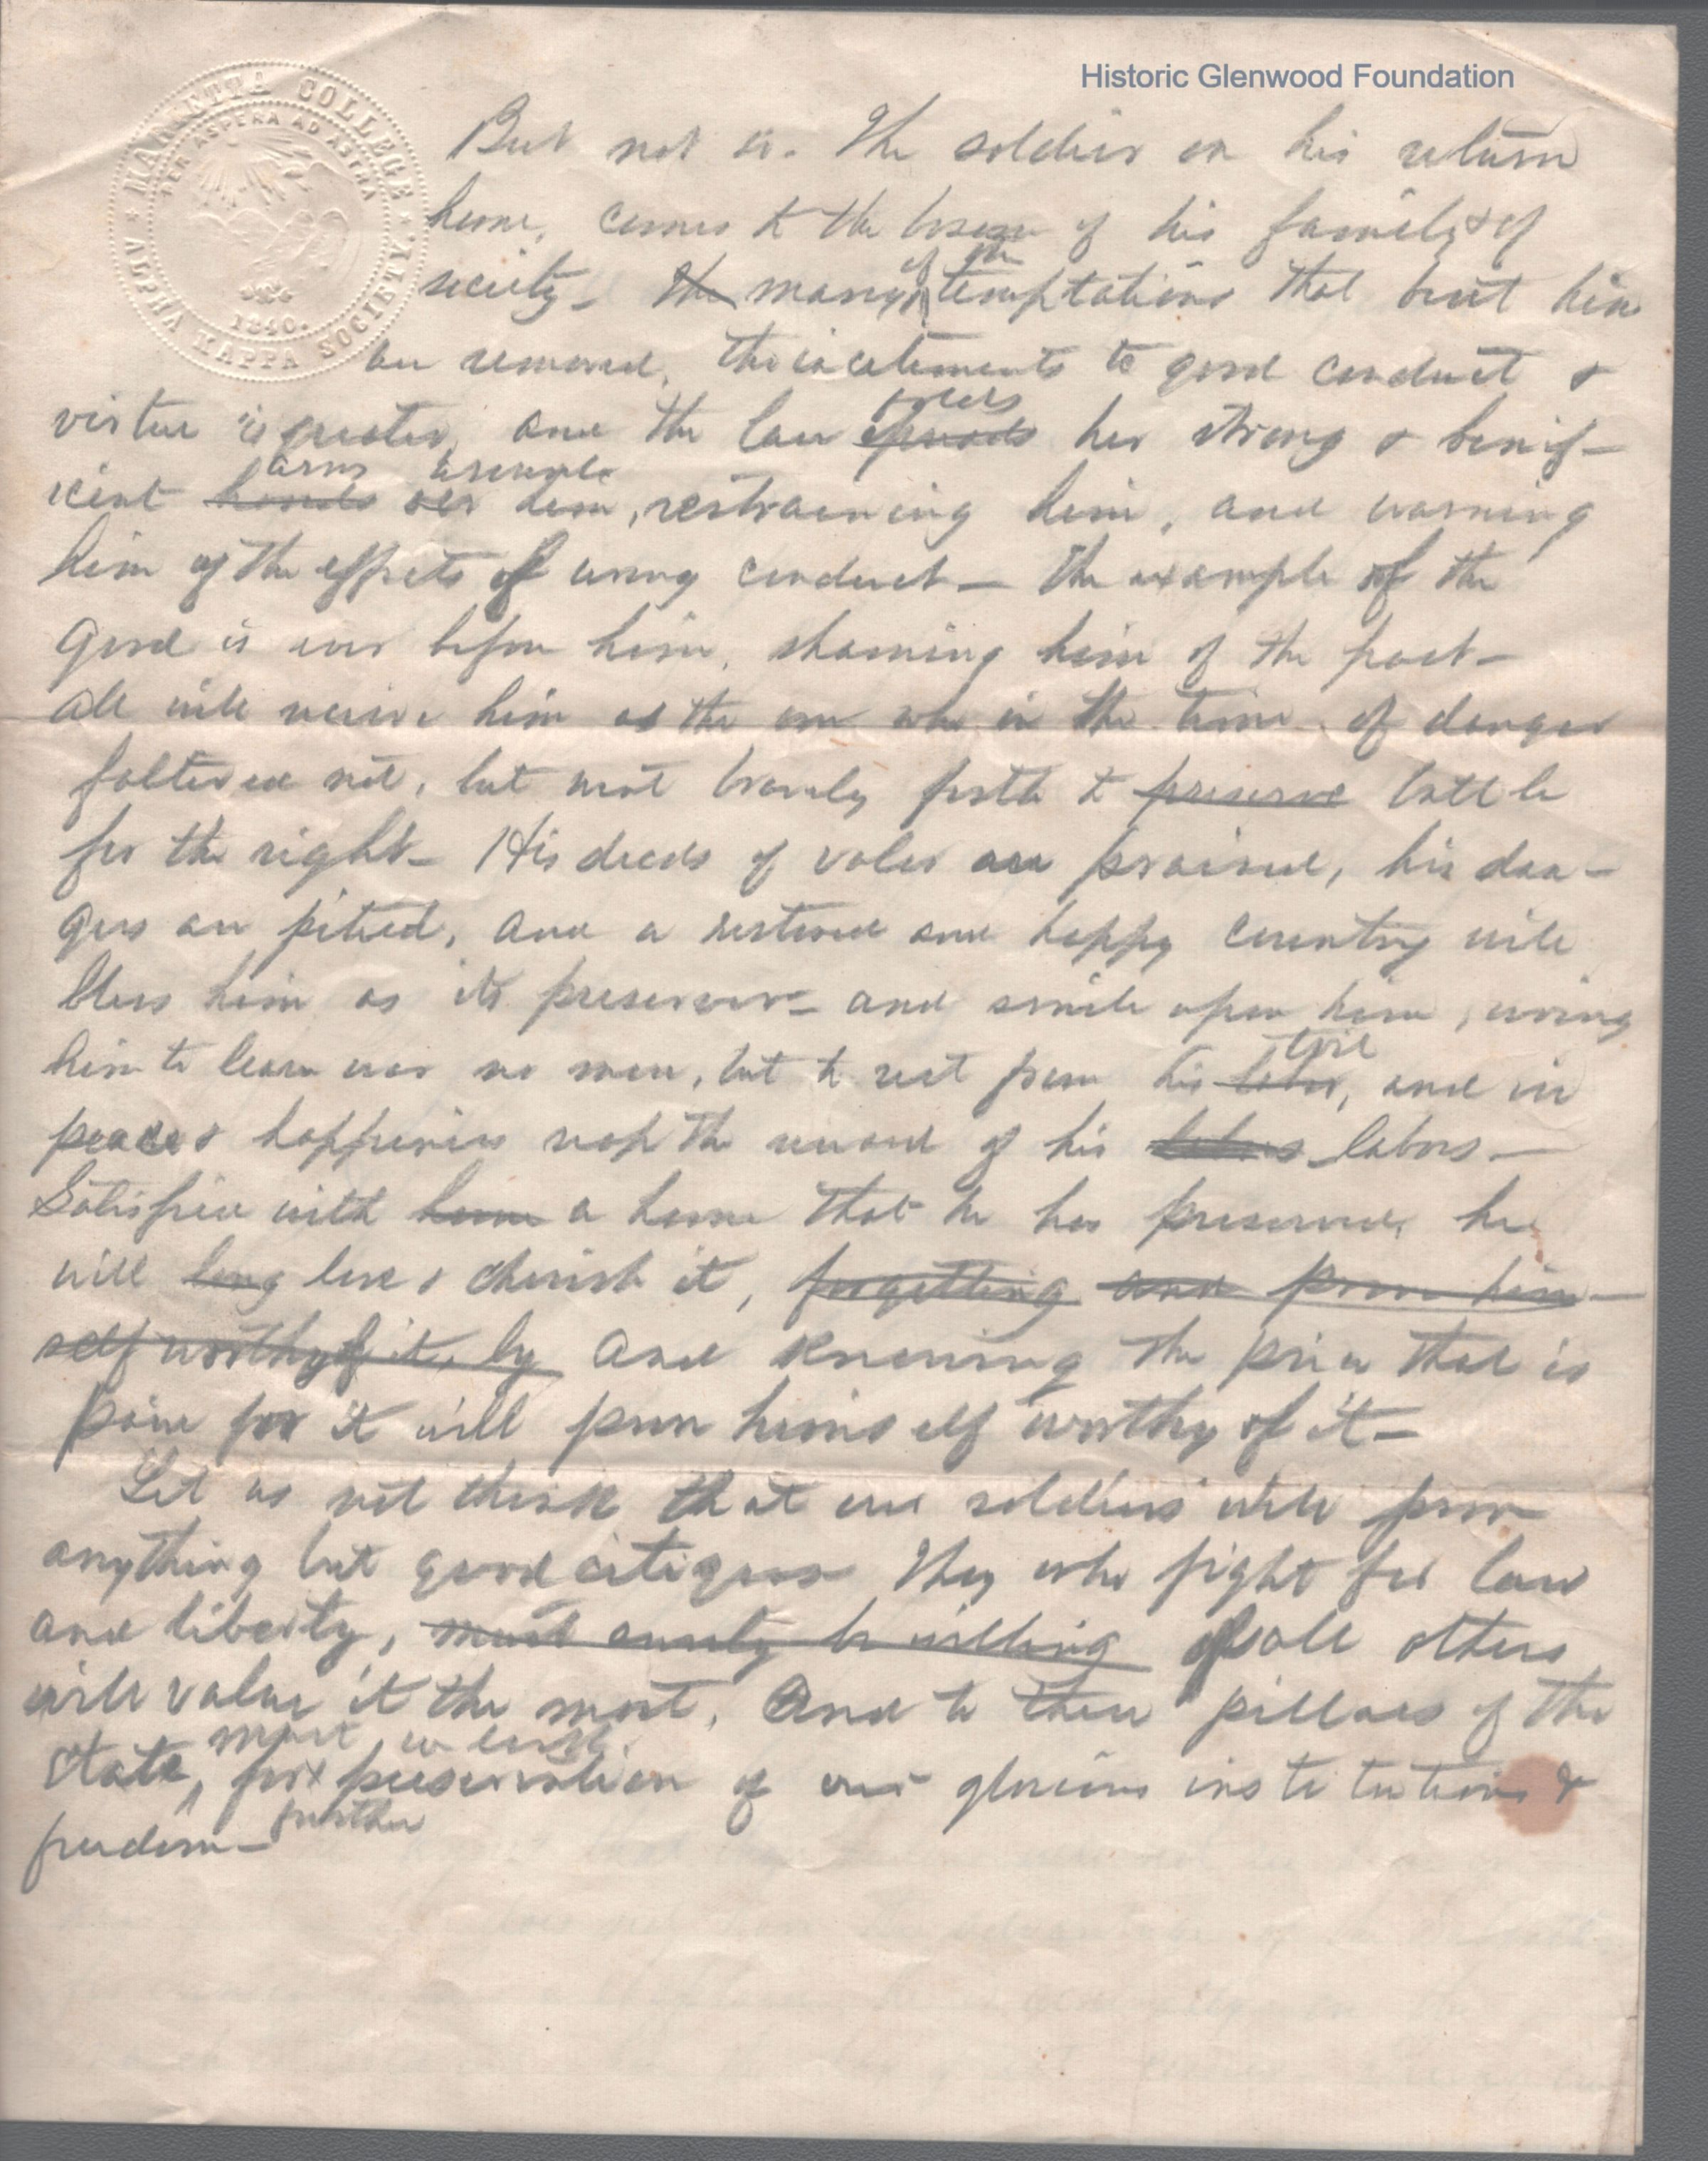 Historic Glenwood Foundation
MARIETTA COLLEGE
PER ASPERA AD ASTRA
ALPHA KAPPA SOCIETY.
1840.
But not so. The soldier on his return
home, comes to the bosom of his family & of
society – the many of the temptations that beset him
are removed, the incitements to good conduct &
virtue is greater, and the law folds spreads her strong & benif-
icient arms hands around over him, restraining him, and warning
him of the effects of wrong conduct – the example of the
Good is ever before him, shaming him of the past –
All will receive him as the one who in the time of danger
faltered not, but went bravely forth to preserve battle
for the right – His deeds of valor are praised, his dan-
gers are pitied, and a restored and happy country will
bless him as its preserver – and smile upon him,
him to learn war no more, but to rest from his toil labor, and in
peace & happiness reap the reward of his labors labors –
Satisfied with home a home that he has preserved, he
will long love & cherish it, forgetting and prove him-
self worthy of it, by and knowing the price that is
paid for it will prove himself worthy of it –
Let us not think that our soldiers will prove
anything but good citizens They who fight for law
and liberty, must surely be willing of all others
will value it the most, And to these pillars of the
state, must we look for further preservation of our glorious institutions &
freedom –